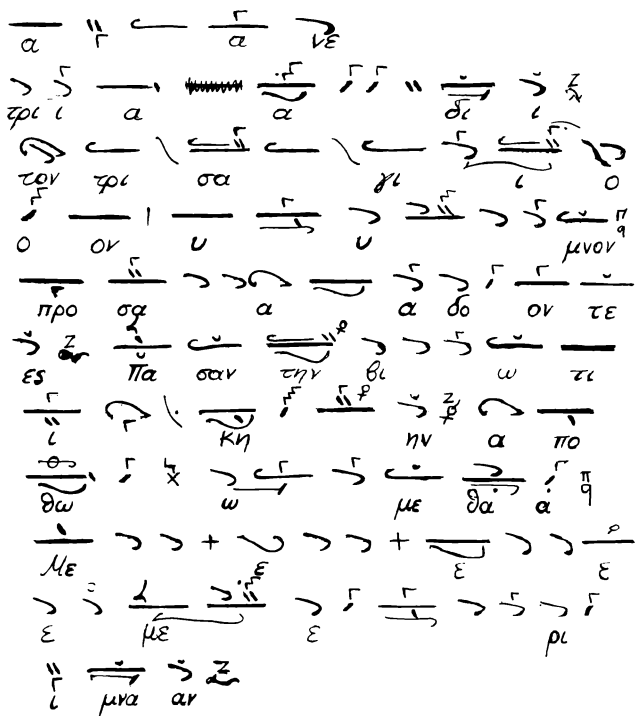 α α νε
τρι ι α α δι ι
τον τρι σα γι ι ο
ο ον υ υ μνον
προ σα α α δο ον τε
ες Πα σαν την βι ω τι
ι κη ην α πο
θω ω με θα α
Με ε ε ε
ε με ε ρι
ι μνα αν